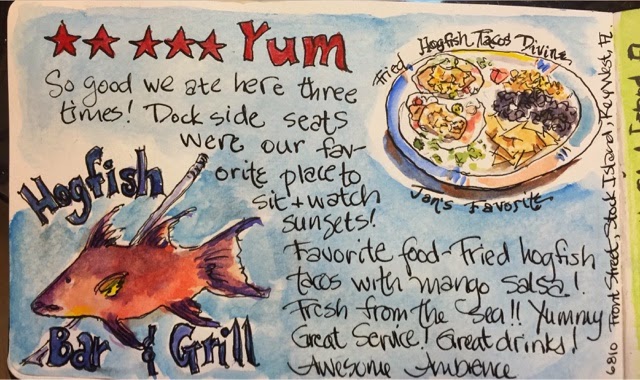 Yum
So good we ate here three
times! Dock side seats
were our fav-
orite place to
sit + watch
sunsets!
Fried Hogfish Tacos Divine
Jan's Favorite
Hogfish
Bar & Grill
Favorite food - Fried hogfish
tacos with mango salsa!
Fresh from the sea!! Yummy
Great Service! Great drinks!
Awesome Ambience
6810 Front Street, Stock Island, Key West, FL